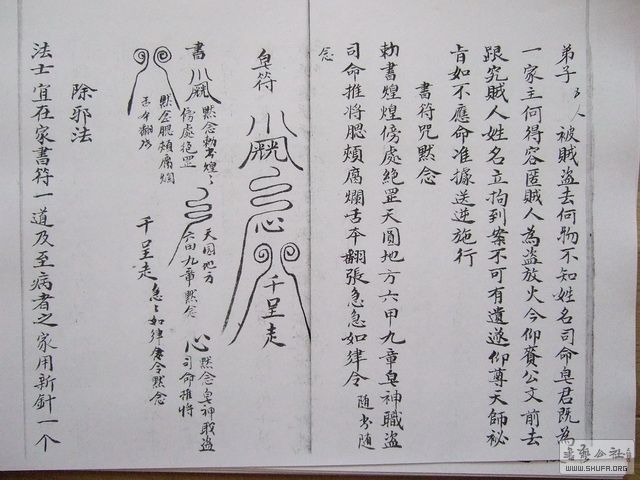 弟子ㄋ人被賊盜去何物不知姓名司命皂君既為
一家主何得容匿賊人為盜放火今仰賫公文前去
跟究賊人姓名立拘到案不可有遺遂仰尊天師祕
肯如不應命准據送逆施行
書符咒默念
勅書煌煌傍處絶罡天圓地方六甲九章皂神職盜
司命推将腮頰腐爛舌本翻張急急如律令 随书随
念
皂符
千呈走
書
默念勅書煌々
傍處絶罡
天圓地方
六甲九章默念
心
默念皂神職盜
司命推将
默念腮頰腐爛
舌本翻張
千呈走
急々如律令默念
除邪法
法士宜在家書符一道及至病者之家用新針一个
书法公社
WWW.SHUFA.ORG